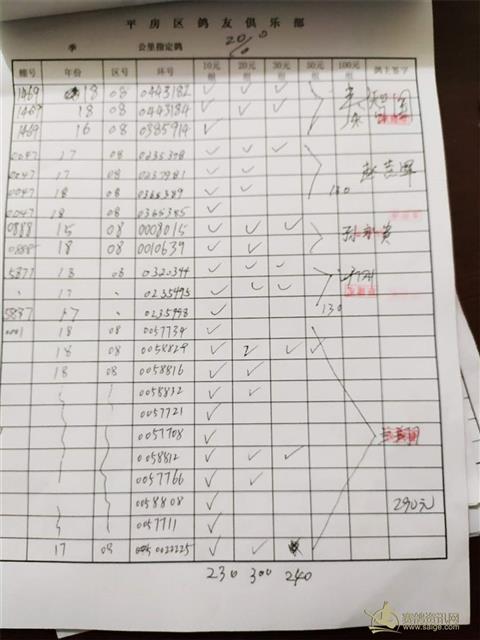 平房区鸽友俱乐部
季 公里指定鸽
棚号 年份 区号 环号 10元组 20元组 30元组 50元组 100元组 鸽主签字
1469 18 08 0443182 ✓ ✓ ✓
1469 18 08 0443184 ✓ ✓ ✓
1469 16 08 0385914 ✓
0047 17 08 0235308 ✓ ✓ ✓
0047 17 0237981 ✓ ✓
0047 18 08 0365389 ✓ ✓
0047 18 0365385 ✓
0888 15 08 0008015 ✓ ✓ ✓
0888 18 08 0010639 ✓ ✓
5877 18 08 0320344 ✓ ✓ ✓
17 0235495 ✓ ✓ ✓
17 0235498 ✓
130
18 0057734 ✓
18 08 0058829 ✓ 2 ✓ ✓
18 08 0058816 ✓ ✓
0058832 ✓ ✓
0057721 ✓
0057708 ✓
0058812 ✓ ✓ ✓
0057766 ✓ ✓
0058808 ✓ 290元
0057711 ✓
17 08 0022225 ✓ ✓
230 300 240
赛鸽资讯网
www.saige.com